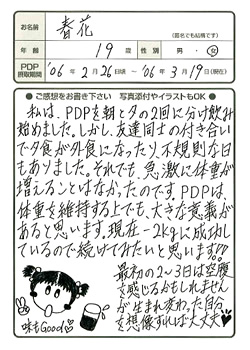 お名前 春花
(匿名でも結構です)
年齢 19歳 性別 男・女
PDP摂取期間 '06年2月26日頃～'06年3月19日(現在)
●ご感想をお書き下さい 写真添付やイラストもOK●
私は、PDPを朝と夕の2回に分け飲み
始めました。しかし、友達同士の付き合い
で夕食が外食になったり、不規則な日
もありました。それでも、急激に体重が
増えることはなかったのです。PDPは、
体重を維持する上でも、大きな意義が
あると思います。現在-2kgに成功し
ているので続けてみたいと思います!!
最初の2～3日は空腹
を感じるかもしれません
が生まれ変わった自分
を想像すれば大丈夫♥
味もGood♥